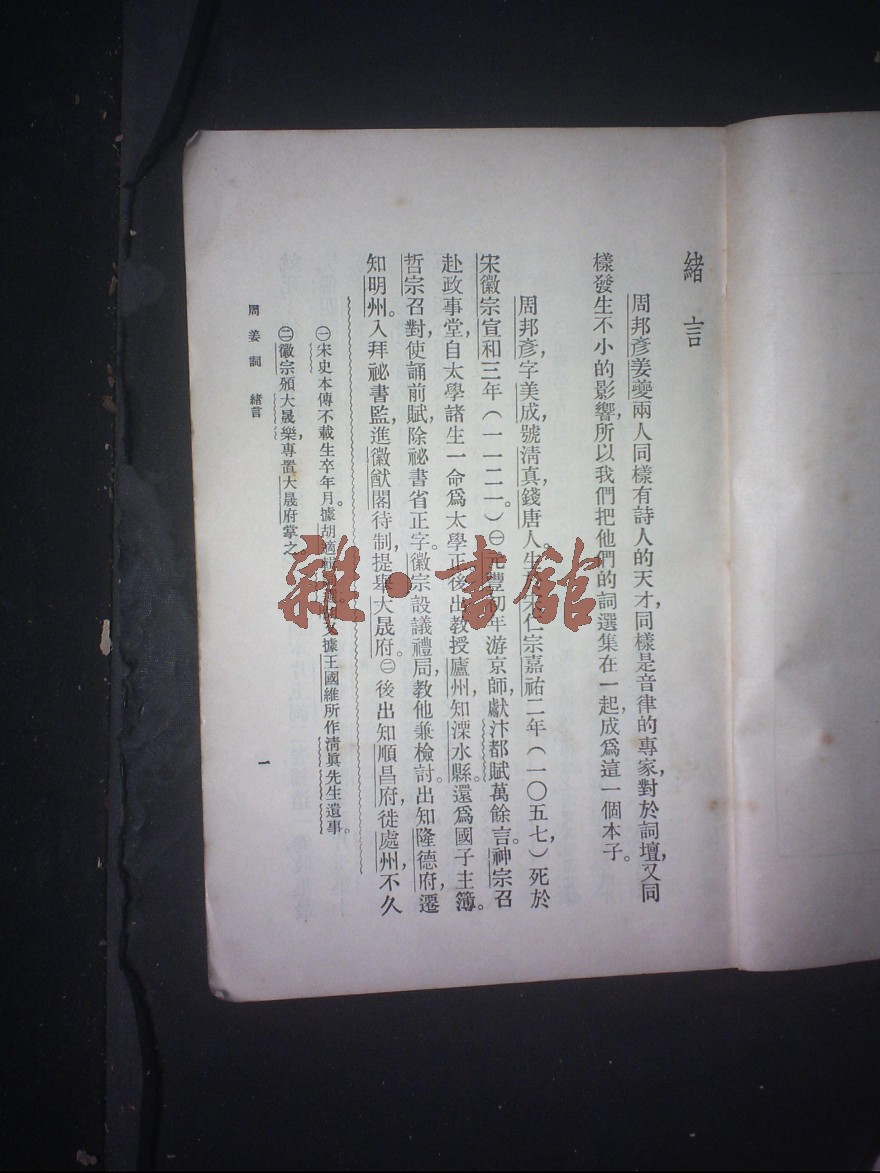 緒言
周邦彥姜夔兩人同樣有詩人的天才,同樣是音律的專家,對於詞壇,又同
樣發生不小的影響,所以我們把他們的詞選集在一起,成爲這一個本子。
周邦彥,字美成,號清真,錢唐人。生於宋仁宗嘉祐二年(一〇五七)死於
宋徽宗宣和三年(一一二一)。㊀元豐初年游京師,獻汴都賦萬餘言。神宗召
赴政事堂,自太學諸生一命爲太學正。後出教授廬州,知溧水縣。還爲國子主簿。
哲宗召對,使誦前賦,除祕書省正字。徽宗設議禮局,教他兼檢討。出知隆德府,遷
知明州。入拜祕書監,進徽猷閣待制,提舉大晟府。㊁後出知順昌府,徙處州,不久
㊀宋史本傳不載生卒年月。據胡適 據王國維所作清眞先生遺事。
㊁徽宗頒大晟樂,專置大晟府掌之。
周姜詞 緒言
一
雜·書館